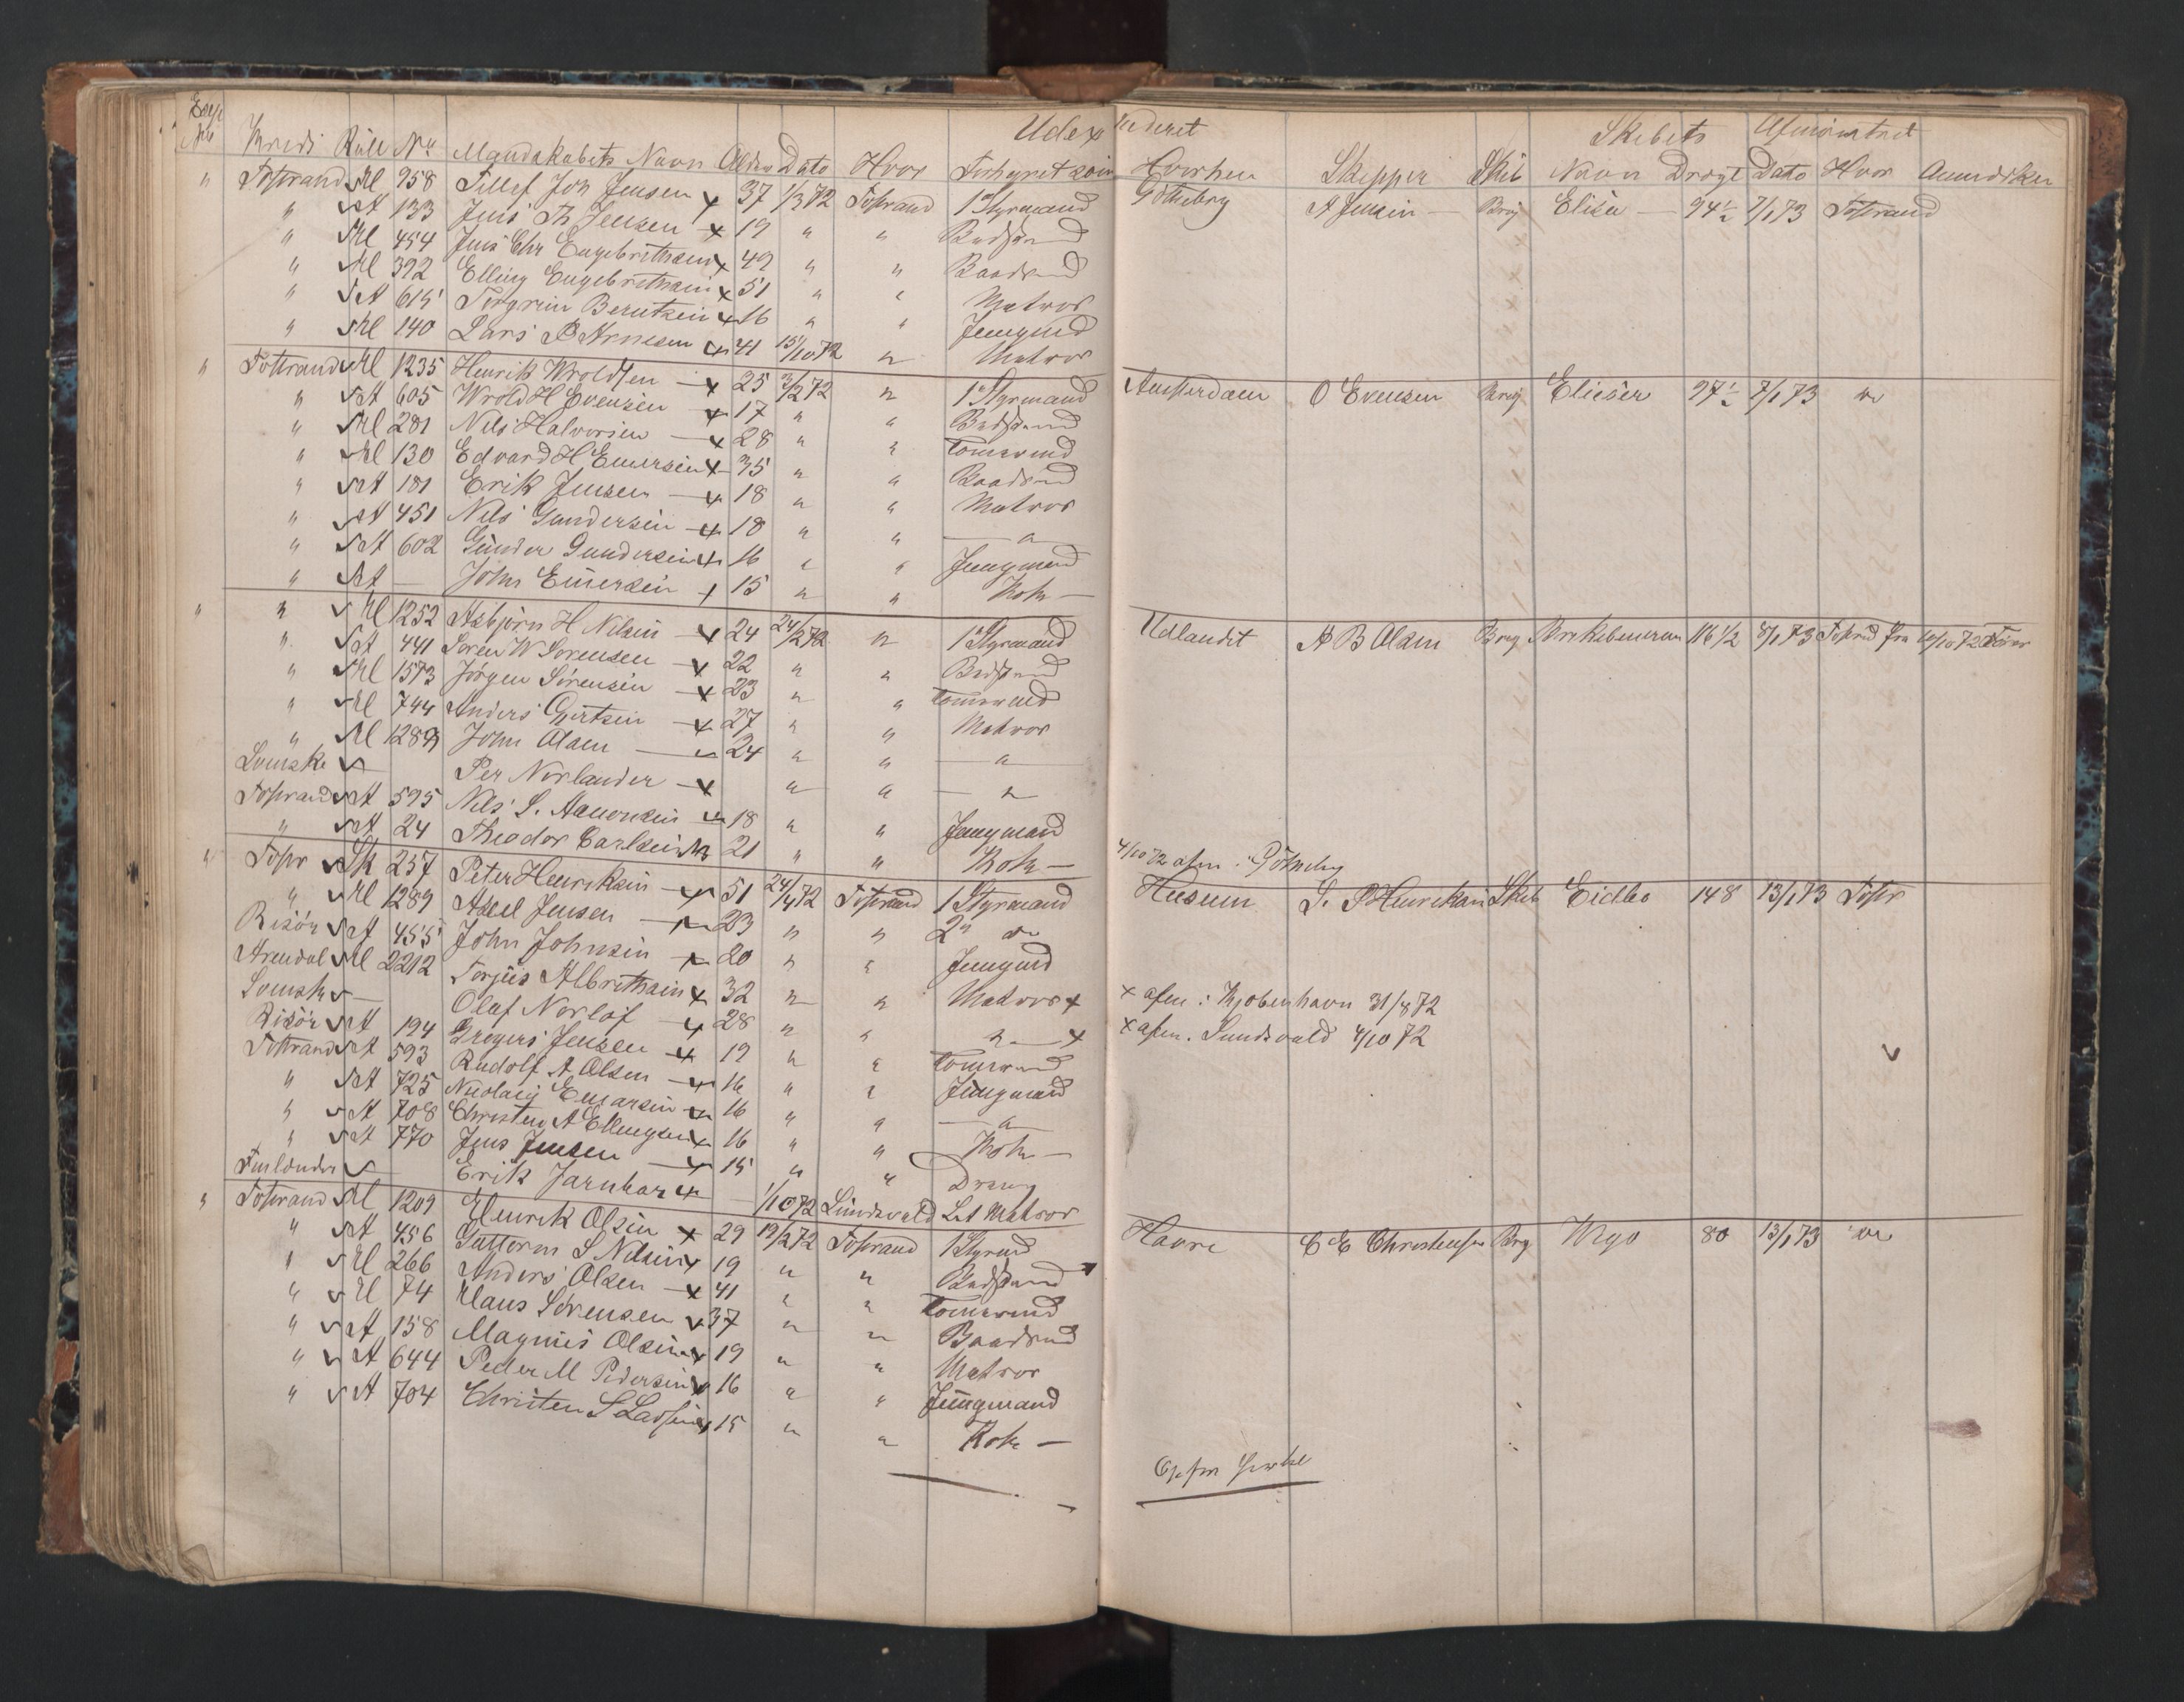 Udex ederet Skibets Afmönstret
Kreds Rull No Mandskabets Navn Alder Dato Hvor Forhyret som Hvorhen Skipper Skib Navn Drægt Dato Hvor Anmærkn
" Tvstrand Hl 958 Tellef Joh Jensen x 37 1/3 72 Tvstrand 1 Styrmand Götheborg A Jensen — Brig Elisa — 94½ 7/1 73 Tvstrand
" A 133 Jens Th Jensen x 19 " " Bedstmd
" Hl 454 Jens Chr Engebrethsen x 49 " " Baadsmd
" Hl 392 Elling Engebrethsen x 51 " " Matros
" A 615 Torgrim Berntsen x 16 " " Jungmd
" Hl 140 Lars B Arnesen x 41 15/10 72 " Matros
" Tvstrand Hl 1235 Henrik Wroldsen — x 25 3/2 72 " 1 Styrmand Amsterdam O Evensen Brig Elieser 97½ 7/1 73 do
" A 605 Wrold H Evensen x 17 " " Bedstmd
" Hl 281 Nils Halvorsen — x 28 " " Tömrmd
" Hl 130 Edvard H Emersen x 35 " " Baadsmd
" A 181 Erik Jensen — x 18 " " Matros
" A 451 Nils Gundersen — x 18 " " — " —
" A 602 Gunder Gundersen x 16 " " Jungmand
" A — John Emersen x 15 " " Kok —
" " Hl 1252 Asbjörn H Nilsen — x 24 24/2 72 " 1 Styrmand Udlandet A B Olsen Brig 116½ 8/1 73 Tvstrd fra 10/10 72
" A 441 Soren W Sorensen x 22 " " Bedstmd
" Hl 1573 Jörgen Sörensen — x 23 " " Tömrmd
" Hl 744 Anders Gjertsen — x 27 " " Matros
" Hl 1289 John Olsen — x 24 " " — " —
Svenske — Per Norlander — x " " — " —
Tvstrand A 595 Nils S. Aanonsen x 18 " " Jungmand
" A 24 Theodor Carlsen x 21 " " Kok — 4/10 72 afm. i Götheborg
" Tvstr Sk 257 Peter Henriksen — x 51 24/4 72 Tvstrand 1 Styrmand Husum S. P Henriksen Skib Eidbo 148 13/1 73 Tvstr
" Hl 1289 Axel Jensen — x 23 " " 2" do
Risör A 455 John Johnsen — x 20 " " Jungmd
Arendal Hl 2212 Torjus Albrethsen x 32 " " Matros x x afm. i Kjöbenhavn 31/8 72
Svensk — Olaf Norlöf — x 28 " " " — x x afm. Sundsvald 4/10 72
Risör A 194 Gregers Jensen — x 19 " " Tömrmd
Tvstrand A 593 Rudolf A Olsen — x 16 " " Jungmand
" A 725 Nicolai Emarsen x 16 " " — " —
" A 708 Christen A Ellingsen x 16 " " Kok —
" A 770 Jens Jensen — x 15 " " Dreng
Finlænder — Erik Jarnbar x — 1/10 72 Sundsvald Let Matros
" Tvstrand Hl 1209 Henrik Olsen x 29 19/2 72 Tvstrand 1 Styrmd Havre C E Christensen Brg Wego 80 13/1 73 do
" A 456 Guttorm S Nilsen x 19 " " Bedstmand
" Hl 266 Anders Olsen — x 41 " " Tömrmd
" Hl 74 Klaus Sörensen x 37 " " Baadsmd
" A 158 Magnus Olsen x 19 " " Matros
" A 644 Peder M Pedersen x 16 " " Jungmand
" A 704 Christen S Larsen x 15 " " Kok —